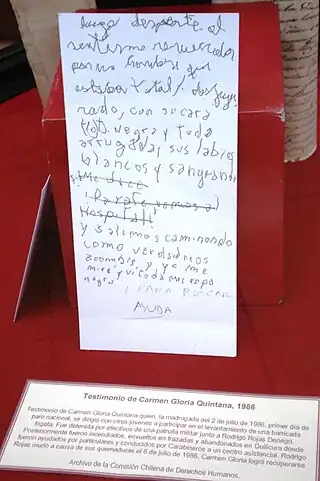 luego desperte al
sentirme
por un hombre que
estaba total/ desfigu
rado, con su cara
toda negra y toda
arrugada, sus labios
blancos y sangrand
Me dice
¡Parate vamos al
Hospital!
y salimos caminando
como verdaderos
zoombis, y yo me
miré y vi toda mi ropa
negra
AYUDA
Testimonio de Carmen Gloria Quintana, 1986
Testimonio de Carmen Gloria Quintana quien, la madrugada del 2 de julio de 1986, primer día de
paro nacional, se dirigió con otros jóvenes a participar en el levantamiento de una barricada
fogata. Fue detenida por efectivos de una patrulla militar junto a Rodrigo Rojas Denegri.
Posteriormente fueron incendiados, envueltos en frazadas y abandonados en Quilicura donde
fueron ayudados por particulares y conducidos por Carabineros a un centro asistencial. Rodrigo
Rojas murió a causa de sus quemaduras el 6 de julio de 1986. Carmen Gloria logró recuperarse.
Archivo de la Comisión Chilena de Derechos Humanos.